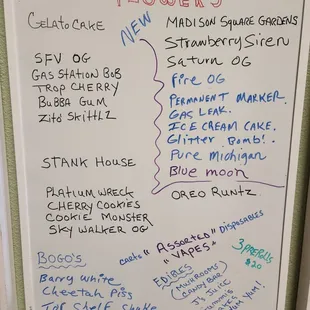 FLOWERS
GELATO CAKE
SFV OG
GAS STATION BOB
TROP CHERRY
BUBBA GUM
ZITO SKITTLZ
STANK HOUSE
PLATIUM WRECK
CHERRY COOKIES
COOKIE MONSTER
SKY WALKER OG
NEW
MADISON SQUARE GARDENS
Strawberry Siren
Saturn OG
Fire OG
PERMANENT MARKER.
GAS LEAK.
ICE CREAM CAKE.
Glitter Bomb!.
Pure Michigan
Blue moon
OREO RUNTZ
BOGO'S
Barry White
Cheetah Piss
Top Shelf Shake
Carts "ASSORTED" DISPOSABLES
"VAPES"
3 PREROLLS
$20
EDIBLES
(MUSHROOMS)
(CANDY BAR)
YUM YUM!